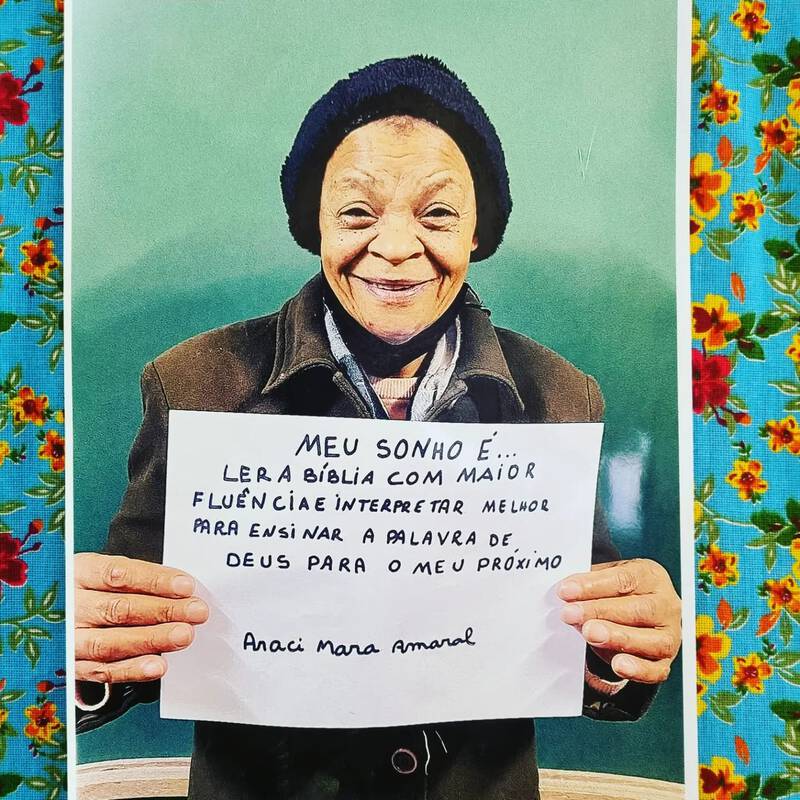 MEU SONHO É...
LER A BÍBLIA COM MAIOR
FLUÊNCIA E INTERPRETAR MELHOR
PARA ENSINAR A PALAVRA DE
DEUS PARA O MEU PRÓXIMO
Araci Mara Amaral